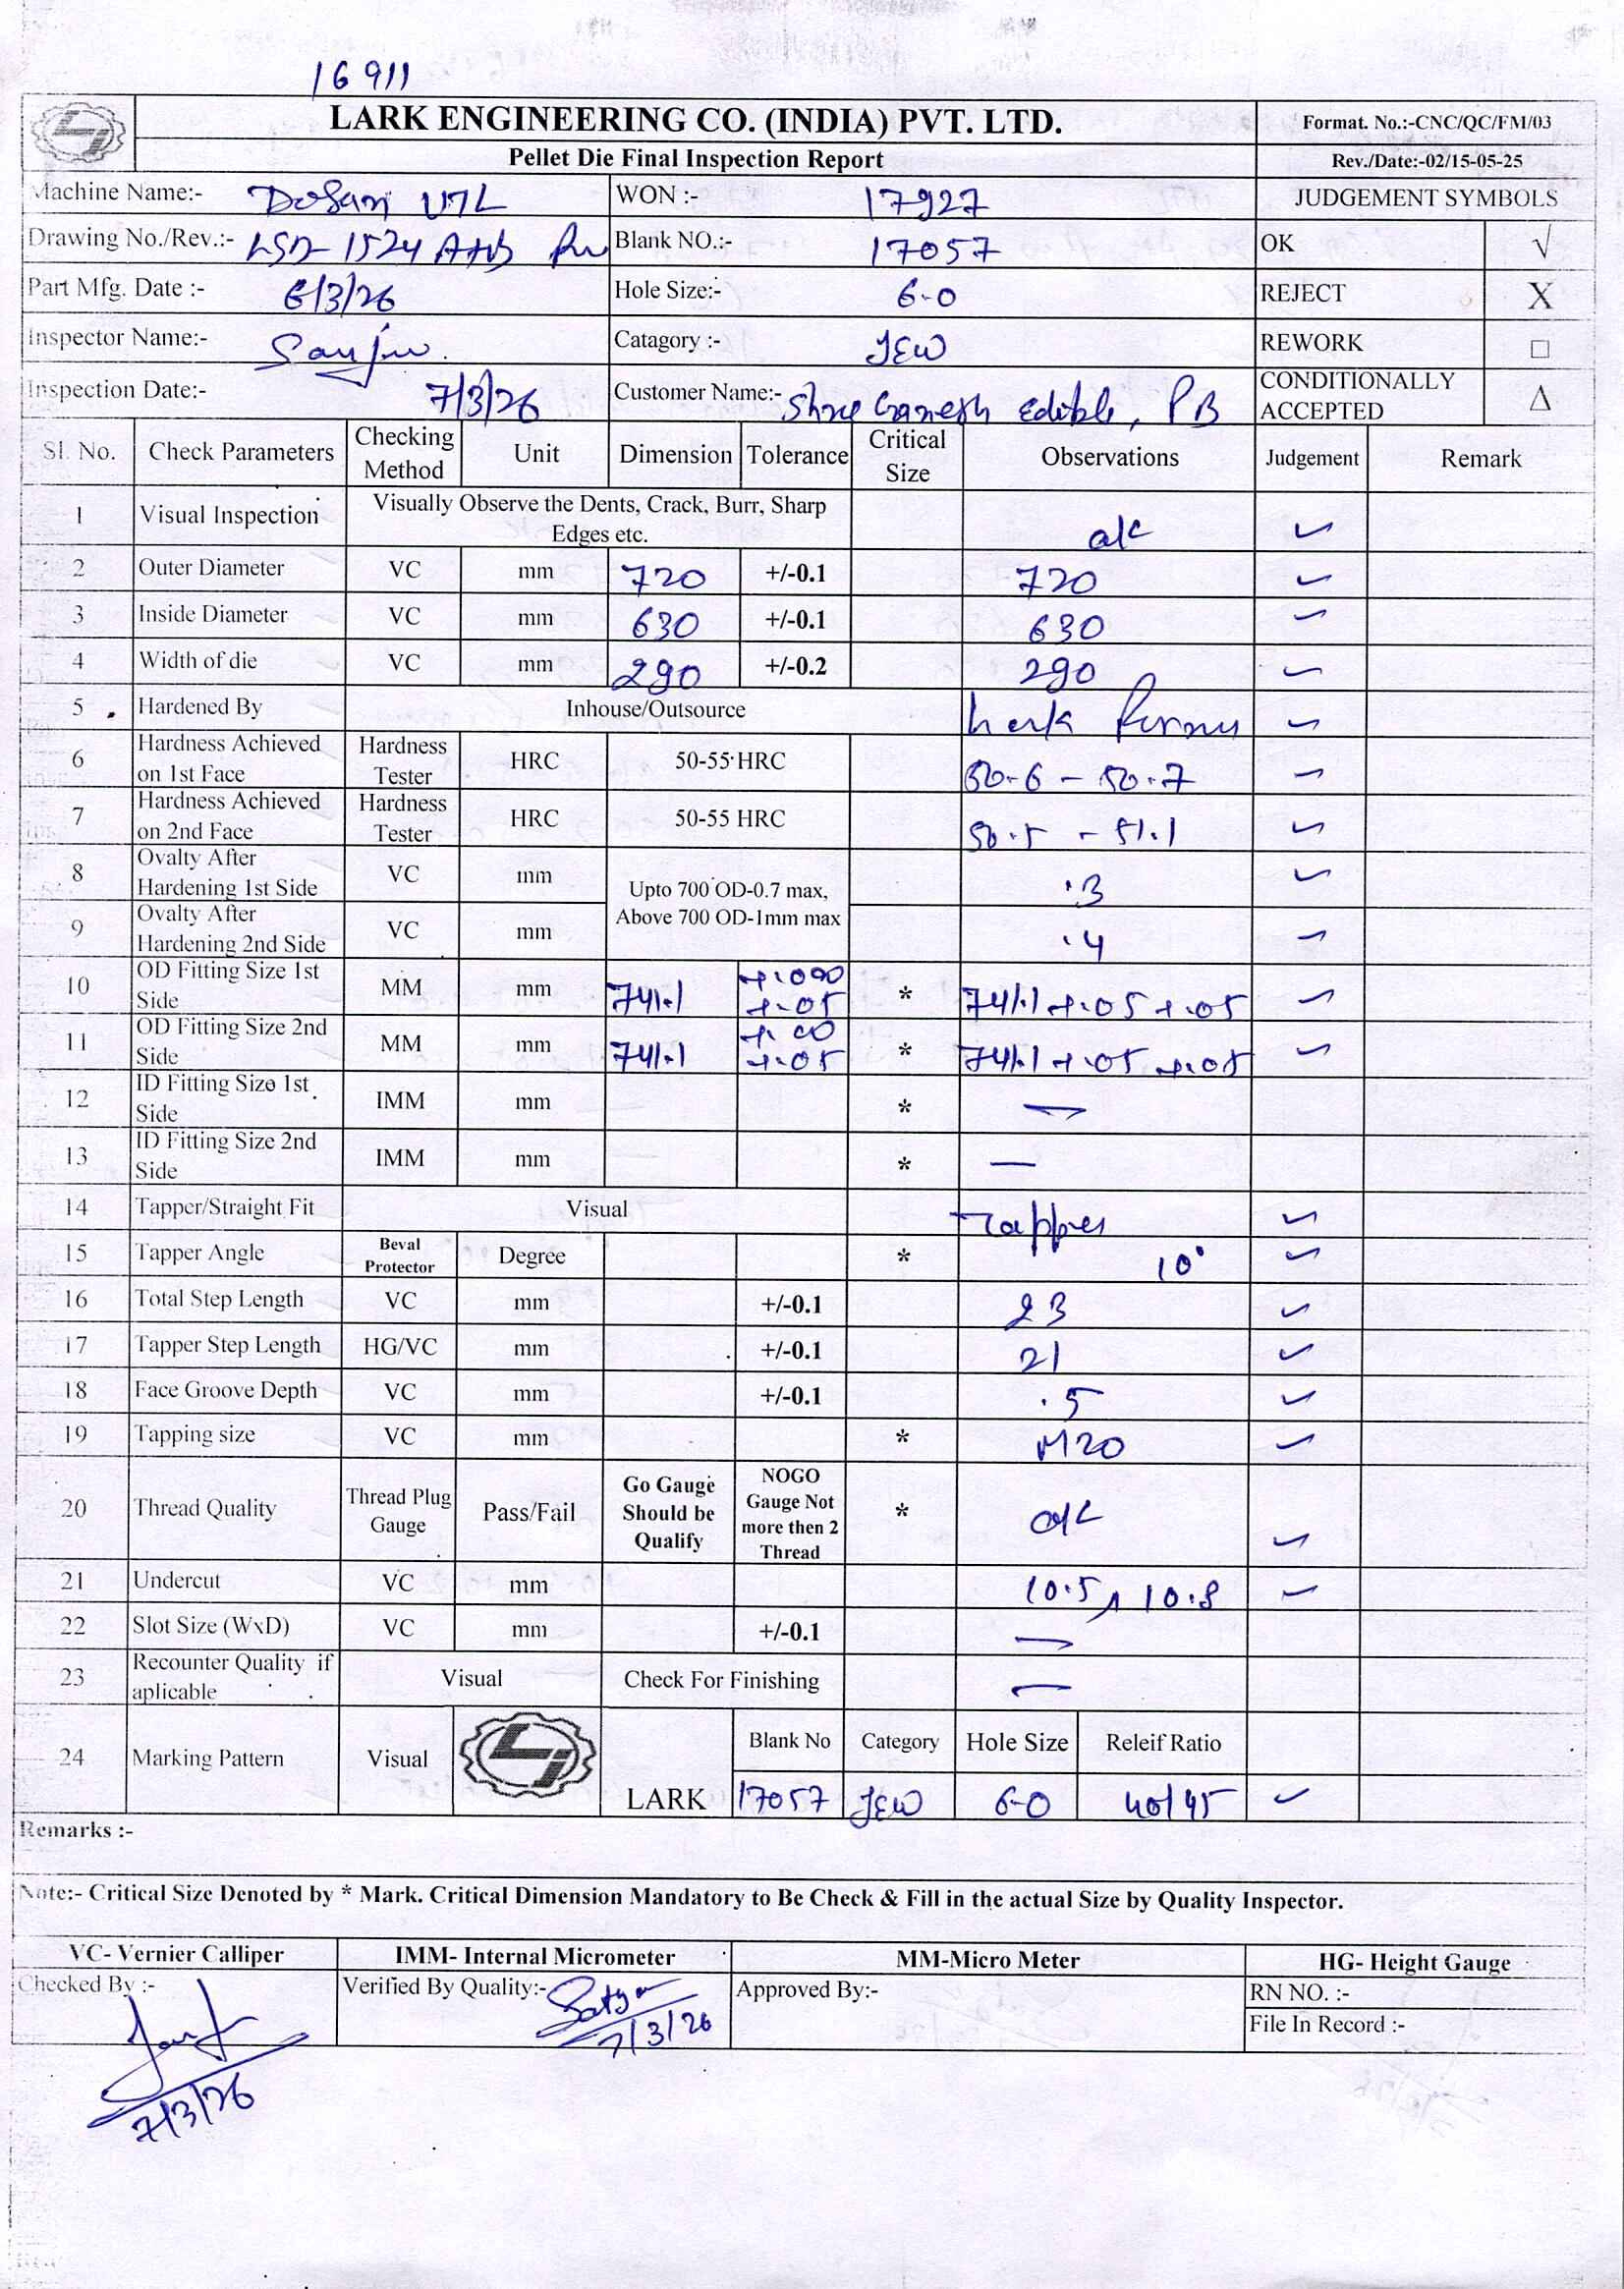 16911
LARK ENGINEERING CO. (INDIA) PVT. LTD.
Format. No.:-CNC/QC/FM/03
Pellet Die Final Inspection Report
Rev./Date:-02/15-05-25
Machine Name:- Dosan VTL WON :- 17927 JUDGEMENT SYMBOLS
Drawing No./Rev.:- LSD-1524 A+B Blank NO.:- 17057 OK √
Part Mfg. Date :- 6/3/26 Hole Size:- 6.0 REJECT X
Inspector Name:- Sanjiv Catagory :- JEW REWORK □
Inspection Date:- 7/3/26 Customer Name:- Shree Ganesh Edible, PB CONDITIONALLY ACCEPTED Δ
Sl. No. Check Parameters Checking Method Unit Dimension Tolerance Critical Size Observations Judgement Remark
1 Visual Inspection Visually Observe the Dents, Crack, Burr, Sharp Edges etc. o/k ✓
2 Outer Diameter VC mm 720 +/-0.1 720 ✓
3 Inside Diameter VC mm 630 +/-0.1 630 ✓
4 Width of die VC mm 290 +/-0.2 290 ✓
5 Hardened By Inhouse/Outsource Lark ✓
6 Hardness Achieved on 1st Face Hardness Tester HRC 50-55 HRC 50.6 - 50.7 ✓
7 Hardness Achieved on 2nd Face Hardness Tester HRC 50-55 HRC 50.5 - 51.1 ✓
8 Ovalty After Hardening 1st Side VC mm Upto 700 OD-0.7 max, Above 700 OD-1mm max .3 ✓
9 Ovalty After Hardening 2nd Side VC mm .4 ✓
10 OD Fitting Size 1st Side MM mm 741.1 +.000 +.05 * 741.1 +.05 +.05 ✓
11 OD Fitting Size 2nd Side MM mm 741.1 +.00 +.05 * 741.1 +.05 +.05 ✓
12 ID Fitting Size 1st Side IMM mm * —
13 ID Fitting Size 2nd Side IMM mm * —
14 Tapper/Straight Fit Visual Tapper ✓
15 Tapper Angle Beval Protector Degree * 10° ✓
16 Total Step Length VC mm +/-0.1 23 ✓
17 Tapper Step Length HG/VC mm +/-0.1 21 ✓
18 Face Groove Depth VC mm +/-0.1 .5 ✓
19 Tapping size VC mm * M20 ✓
20 Thread Quality Thread Plug Gauge Pass/Fail Go Gauge Should be Qualify NOGO Gauge Not more then 2 Thread * o/k ✓
21 Undercut VC mm 10.5, 10.8 ✓
22 Slot Size (WxD) VC mm +/-0.1 —
23 Recounter Quality if aplicable Visual Check For Finishing —
24 Marking Pattern Visual LARK Blank No Category Hole Size Releif Ratio
17057 JEW 6.0 40/45 ✓
Remarks :-
Note:- Critical Size Denoted by * Mark. Critical Dimension Mandatory to Be Check & Fill in the actual Size by Quality Inspector.
VC- Vernier Calliper IMM- Internal Micrometer MM-Micro Meter HG- Height Gauge
Checked By :- Verified By Quality:- Satya Approved By:- RN NO. :-
7/3/26 File In Record :-
7/3/26